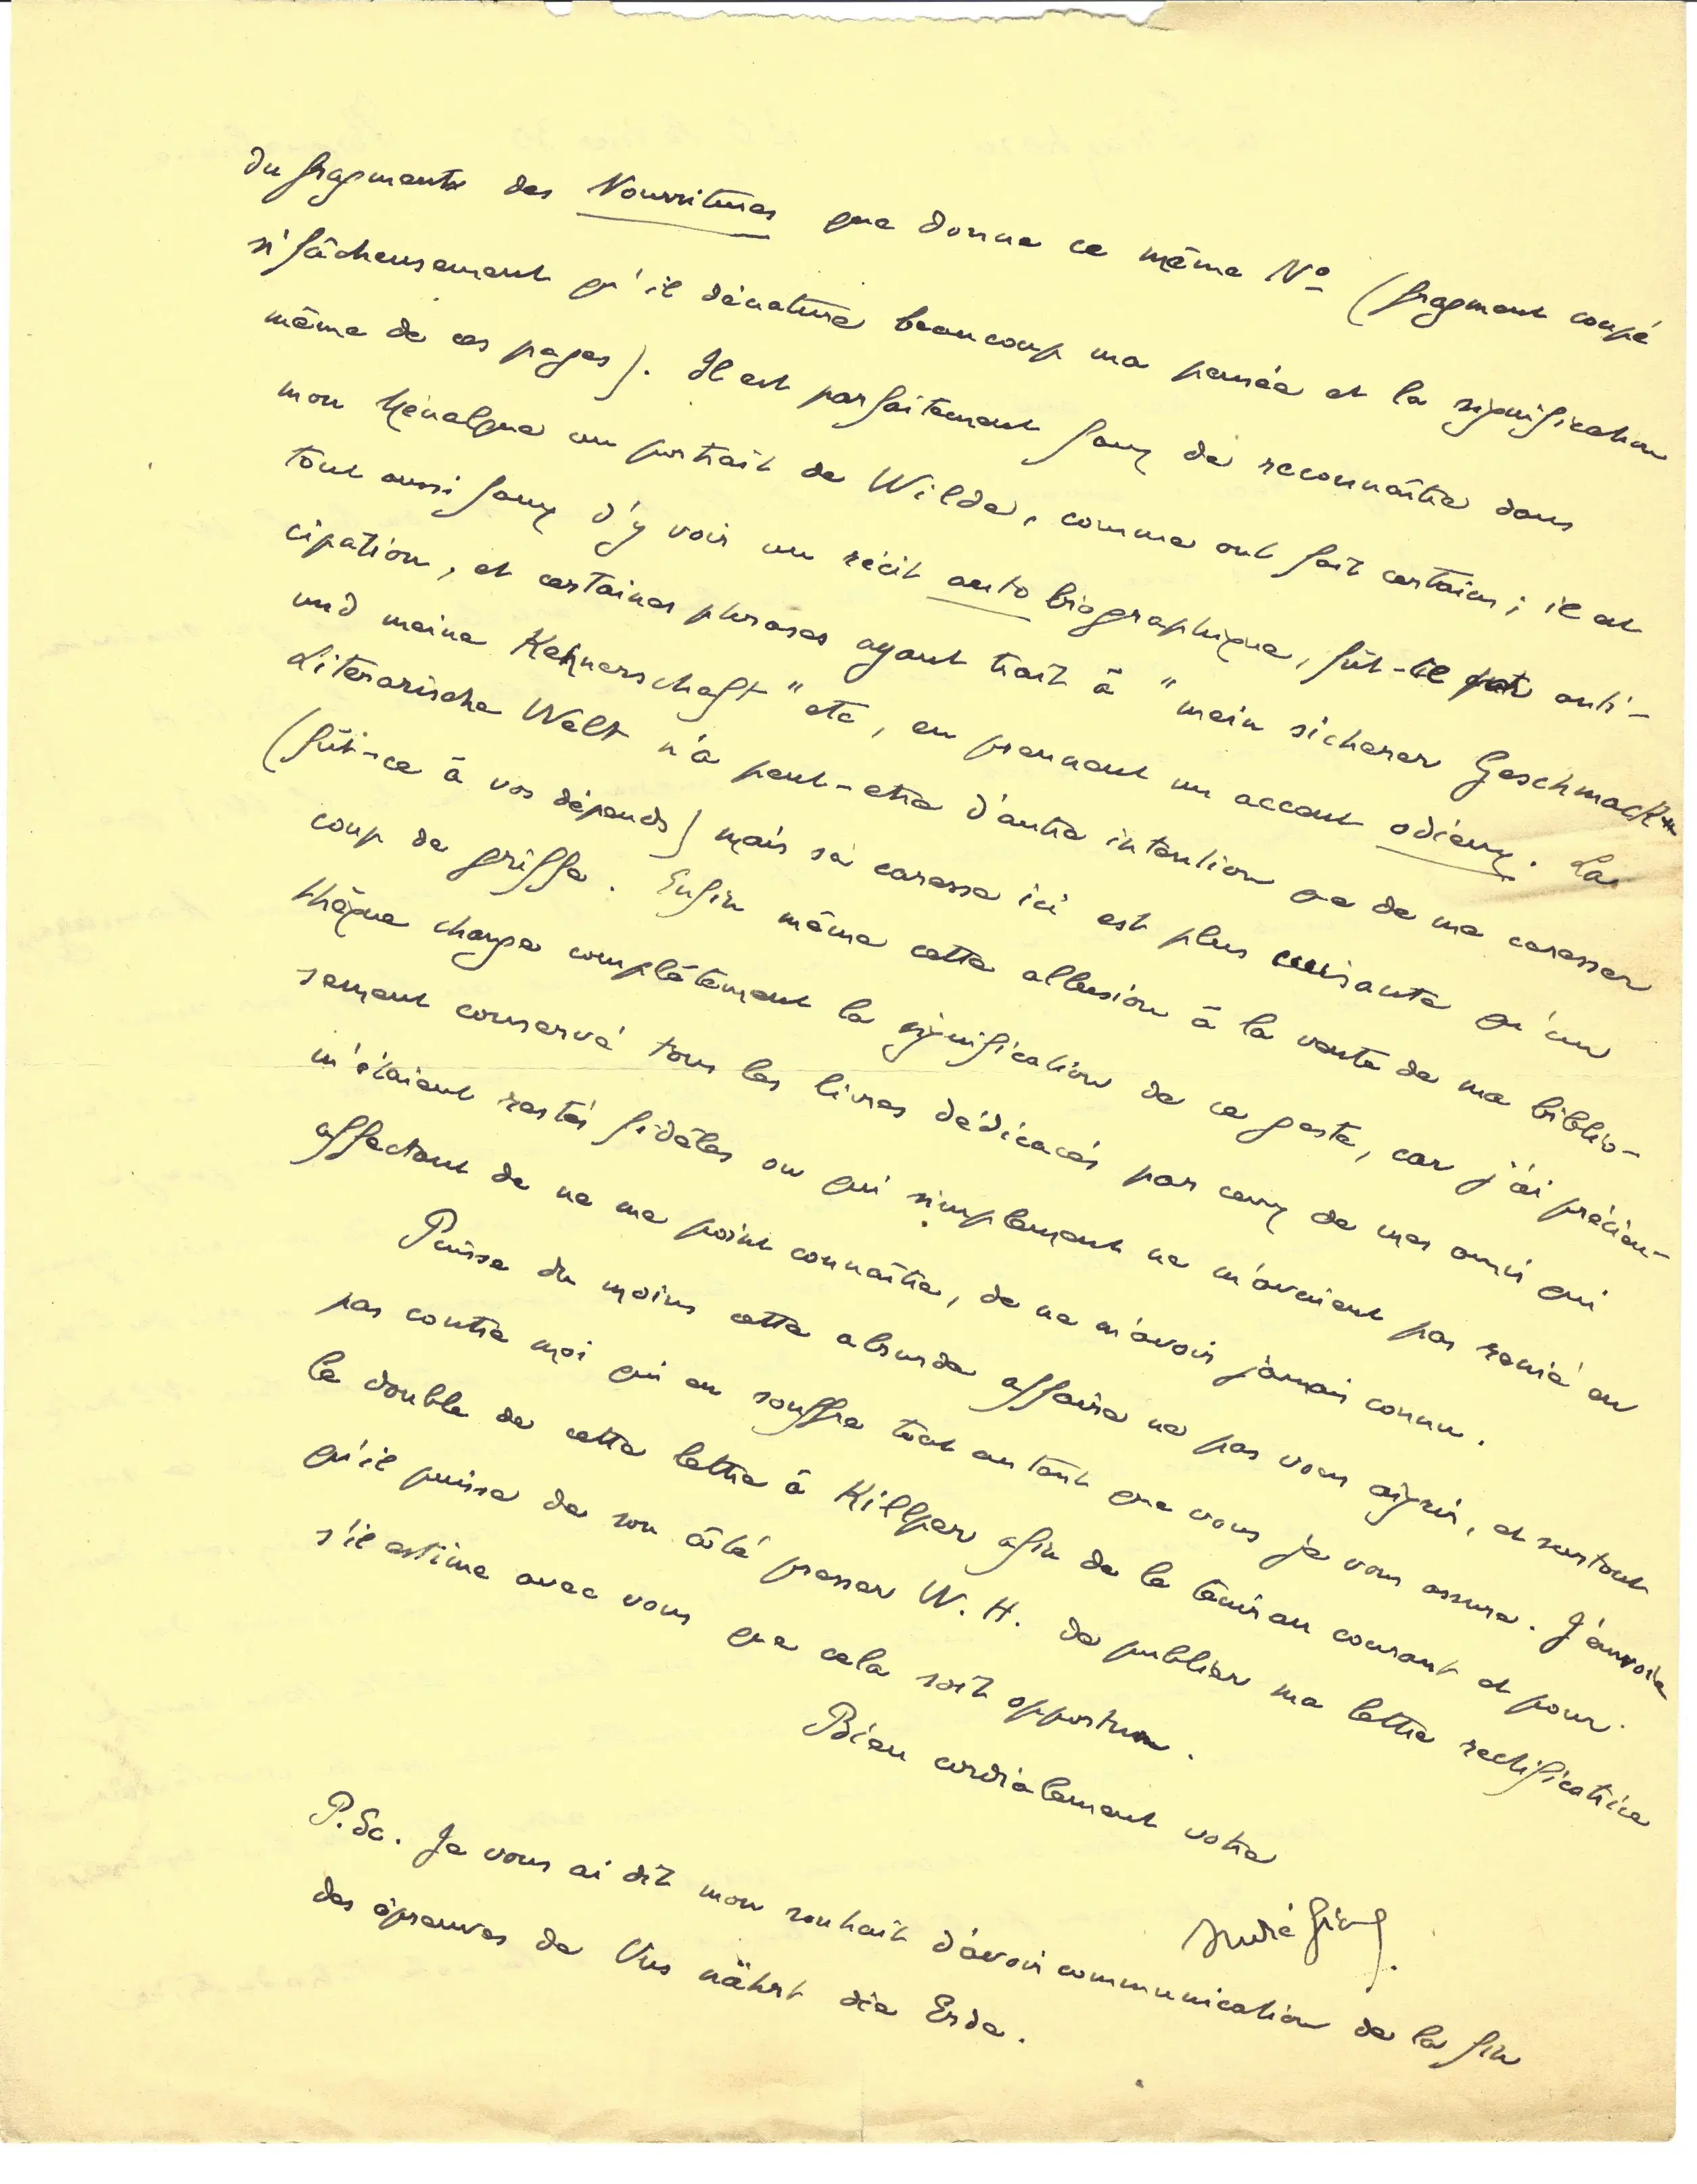 du fragments des Nourritures que donne ce même Nº (fragment coupé
si fâcheusement qu'il dénature beaucoup ma pensée et la signification
même de ces pages). Il est parfaitement faux de reconnaître dans
mon Ménalque un portrait de Wilde, comme ont fait certains; il est
tout aussi faux d'y voir un récit autobiographique, fût-il par anti-
cipation, et certaines phrases ayant trait à "mein sicherer Geschmack
und meine Kennerschaft" etc, en prennent un accent odieux. La
Literarische Welt n'a peut-etre d'autre intention que de me caresser
(fût-ce à vos dépends) mais sa caresse ici est plus cuisante qu'un
coup de griffe. Enfin même cette allusion à la vente de ma biblio-
thèque change complètement la signification de ce geste, car j'ai précieu-
sement conservé tous les livres dédicacés par ceux de mes amis qui
m'étaient restés fidèles ou qui simplement ne m'avaient pas renié en
affectant de ne me point connaître, de ne m'avoir jamais connu.
Puisse du moins cette absurde affaire ne pas vous aigrir, et surtout
pas contre moi qui en souffre tout autant que vous je vous assure. J'envoie
le double de cette lettre à Kilpper afin de le tenir au courant et pour
qu'il puisse de son côté presser W. H. de publier ma lettre rectificatrice
s'il estime avec vous que cela soit opportun.
Bien cordialement votre
André Gide.
P.Sc. Je vous ai dit mon souhait d'avoir communication de la fin
des épreuves de Uns nährt die Erde.